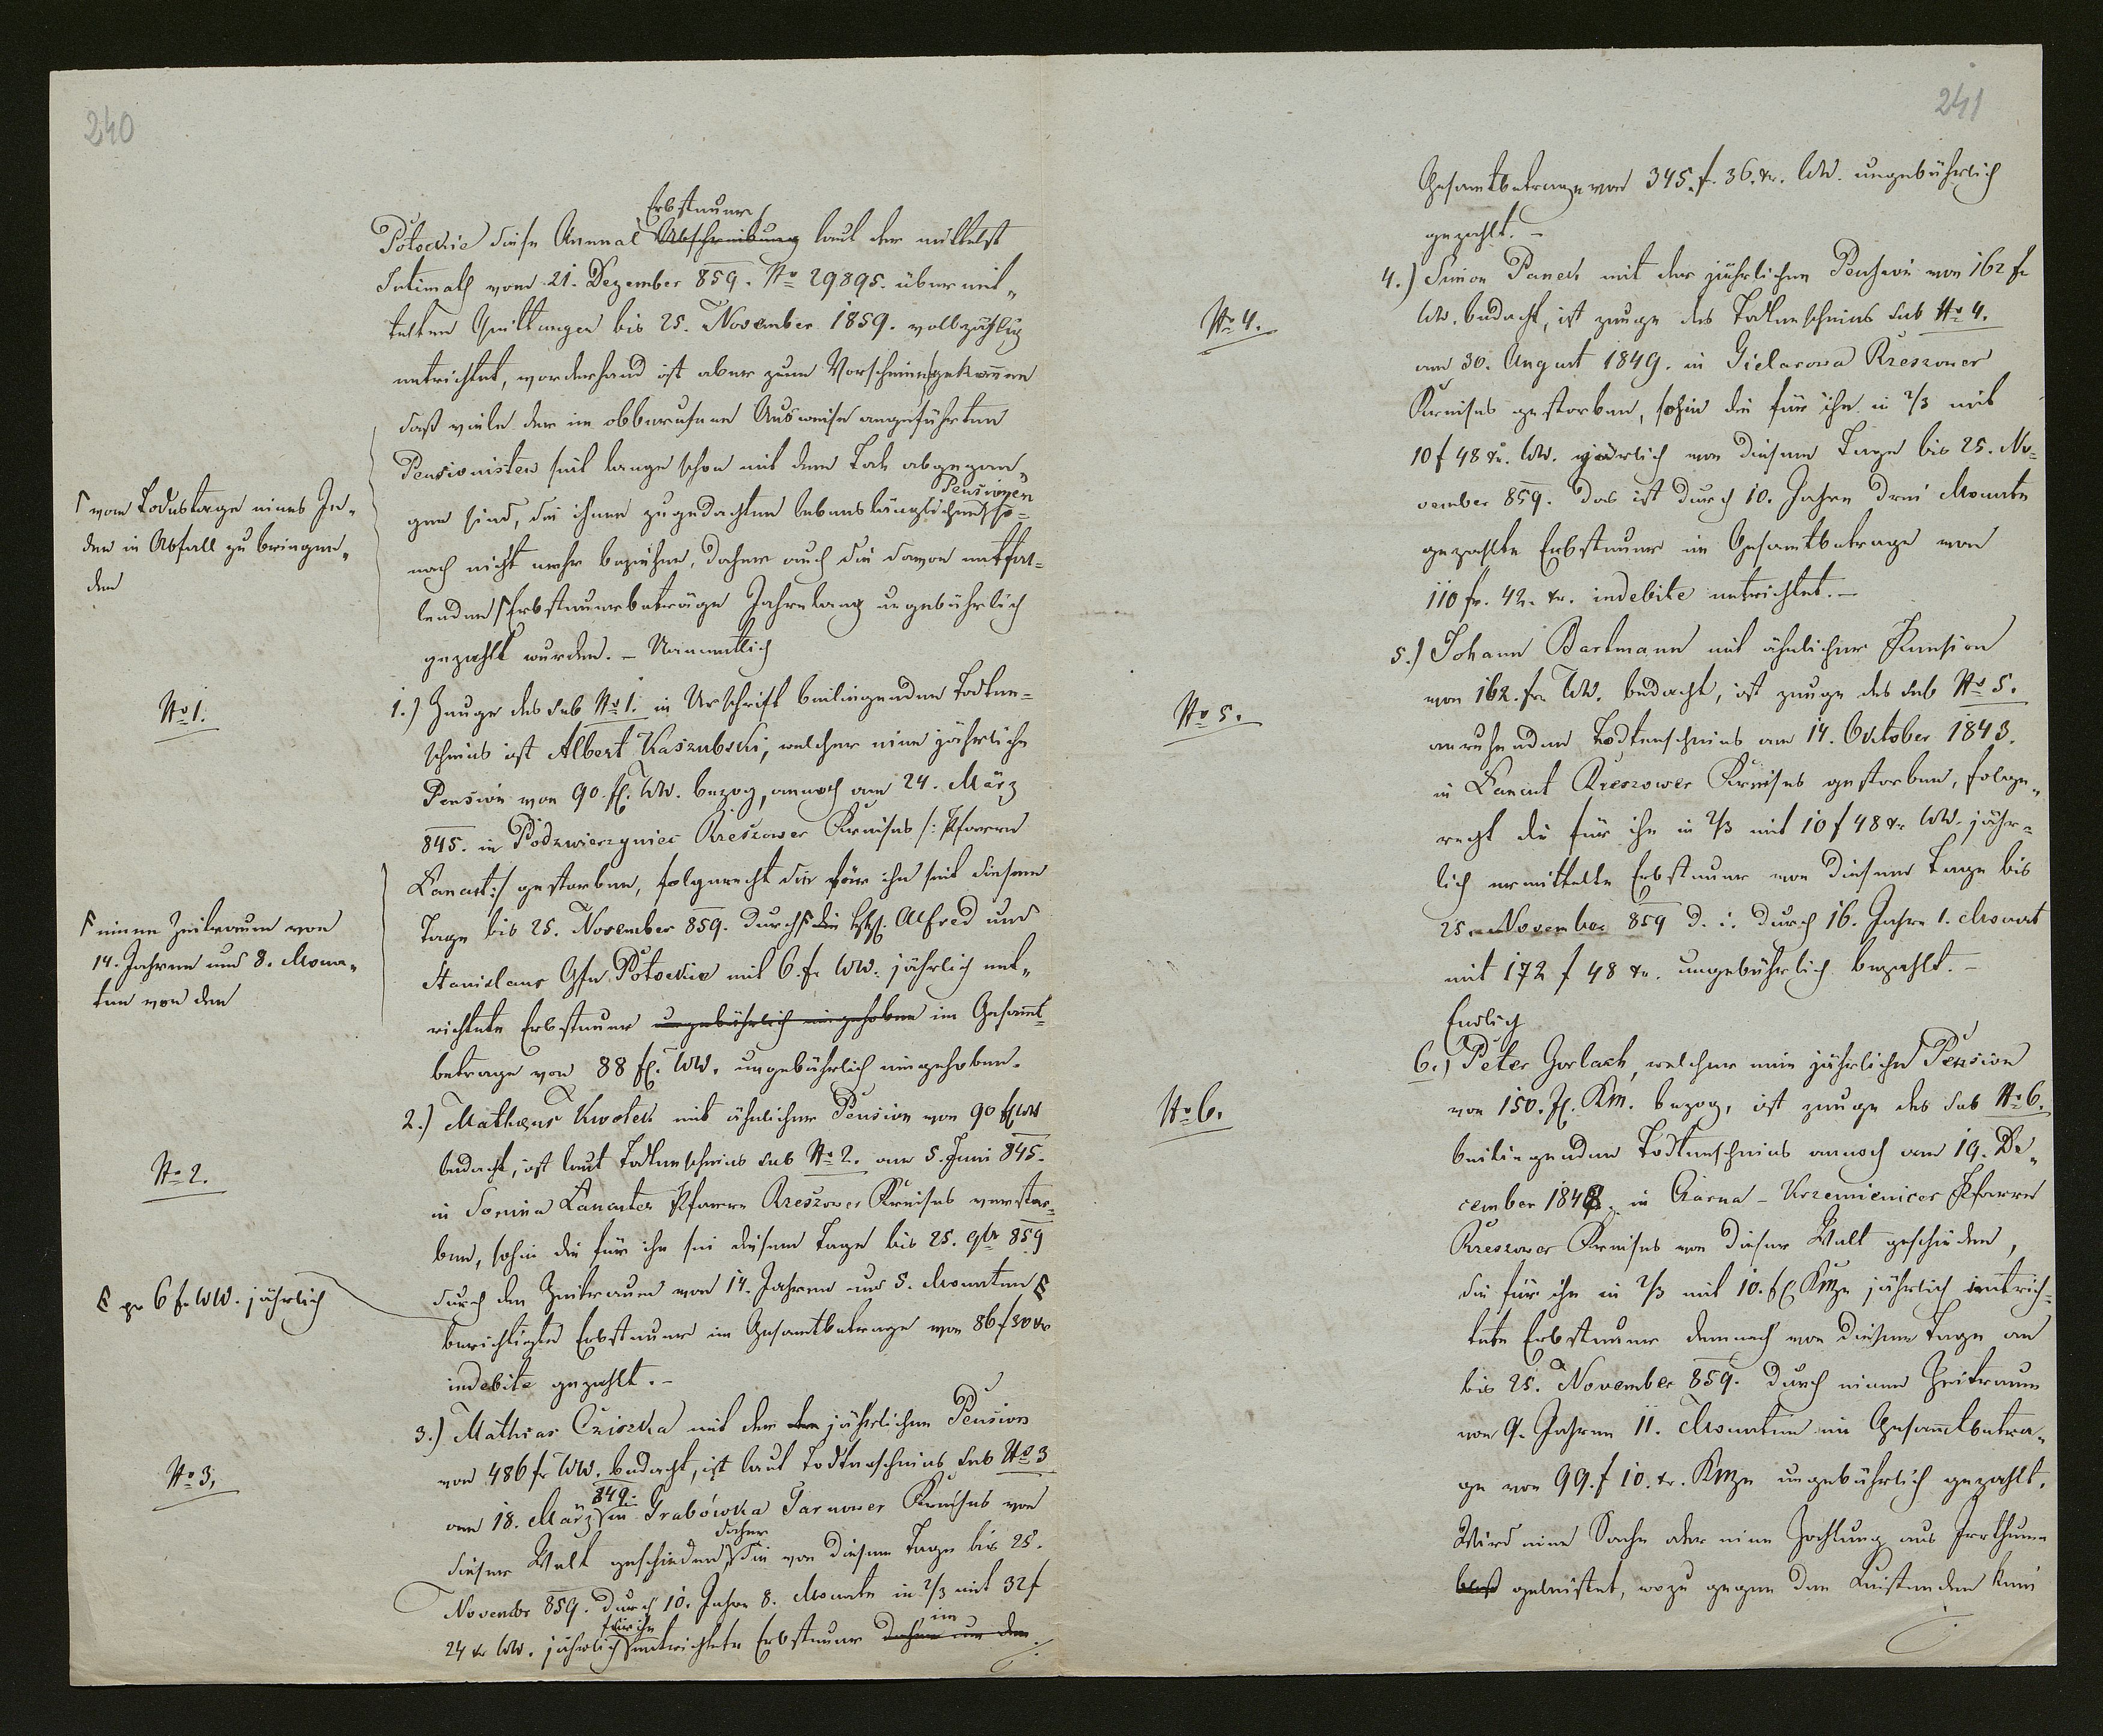 240
Erbsteuer
Potockie diese Annual Abschreibung laut der mittelst
Intimath vom 21. Dezember 859. No 29895. übermit„
telten Quittungen bis 25. November 1859. vollzählig
entrichtet, vorderhand ist aber zum Vorschein gekommen
daß viele der im obberufenen Ausweise angeführten
Pensionisten seit lange schon mit dem Tode abgegan„
Pensionen
gen sind, die ihnen zugedachten lebenslänglichen so=
nach nicht mehr beziehen, daher auch die davon entfal=
lenden Erbsteuerbeträge Jahrelang ungebührlich
gezahlt wurden. – Namentlich
vom Todestage eines Je„
den in Abfall zu bringen„
den
No 1.
1.) Zeuge des sub No 1. in Urschrift beiliegenden Todten=
scheins ist Albert Kaszubski, welcher eine jährliche
Pension von 90 fl. WW. bezog, annoch am 24. März
845. in Podzwierzyniec Rzeszower Kreises /: Pfarre
Lancut :/ gestorben, folgerecht die für ihn seit diesem
Tage bis 25. November 859. durch die Alfred und
Stanislaus Gfn Potockie mit 6. fr WW. jährlich ent„
richtete Erbsteuer ungebührlich eingehoben im Gesammt=
betrage von 88 fl. WW. ungebührlich eingehoben.
einen Zeitraum von
14. Jahren und 8. Mona„
ten von den
No 2.
2.) Mathæus Kwolek mit ähnlicher Pension von 90 fl WW
bedacht, ist laut Todtenscheins sub No 2. am 5. Juni 845.
in Sonina Lancuter Pfarre Rzeszower Kreises verstor=
ben, sohin die für ihn seit diesem Tage bis 25. 9br 859
durch den Zeitraum von 14. Jahren und 5. Monaten
pr 6 fr WW. jährlich
berichtigte Erbsteuer im Gesamtbetrage von 86 f 30 xr
indebite gezahlt. –
No 3.
3.) Mathias Cziszka mit der den jährlichen Pension
von 486 fr WW. bedacht, ist laut Todtenscheins sub No 3
849.
am 18. März in Grabówka Tarnower Kreises von
daher
dieser Welt geschieden die von diesem Tage bis 25.
November 859. durch 10. Jahre 8. Monate in 2/3 mit 32 f
für ihn im
24 xr WW. jährlich entrichtete Erbsteuer daher um den
241
Gesamtbetrage von 345. f. 36. xr. WW. ungebührlich
gezahlt. –
No 4.
4.) Simon Panek mit der jährlichen Pension von 162 fr
WW. bedacht, ist zeuge des Todtenscheins sub No 4.
am 30. August 1849. in Giedlarowa Rzeszower
Kreises gestorben, sohin die für ihn in 2/3 mit
10 f 48 xr. WW. jährlich von diesem Tage bis 25. No=
vember 859. das ist durch 10. Jahre drei Monate
gezahlte Erbsteuer im Gesamtbetrage von
110 fr. 42. xr. indebite entrichtet. –
No 5.
5.) Johann Bartmann mit ähnlicher Pension
von 162. fr WW. bedacht, ist zeuge des sub No 5.
anruhenden Todtenscheins am 14. October 1843.
in Lancut Rzeszower Kreises gestorben, folge„
recht die für ihn in 2/3 mit 10 f 48 xr WW. jähr=
lich ermittelte Erbsteuer von diesem Tage bis
25. November 859 d. i. durch 16. Jahre 1. Monat
mit 172 f 48 xr. ungebührlich bezahlt. –
Endlich
No 6.
6.) Peter Gorlach, welcher eine jährliche Pension
von 150. fl. KM. bezog, ist zeuge des sub No 6.
beiliegenden Todtenscheins annoch am 19. De„
cember 1848. in Czarna – Krzemienicer Pfarre
Rzeszower Kreises von dieser Welt geschieden,
die für ihn in 2/3 mit 10. fl KMze jährlich entrich=
tete Erbsteuer demnach von diesem Tage an
bis 25. November 859. durch einen Zeitraum
von 9. Jahren 11. Monaten im Gesammtbetra„
ge von 99. f 10. xr. KMze ungebührlich gezahlt.
Wird eine Sache oder eine Zahlung aus Irrthume
bloß geleistet, wozu gegen den Leistenden kein